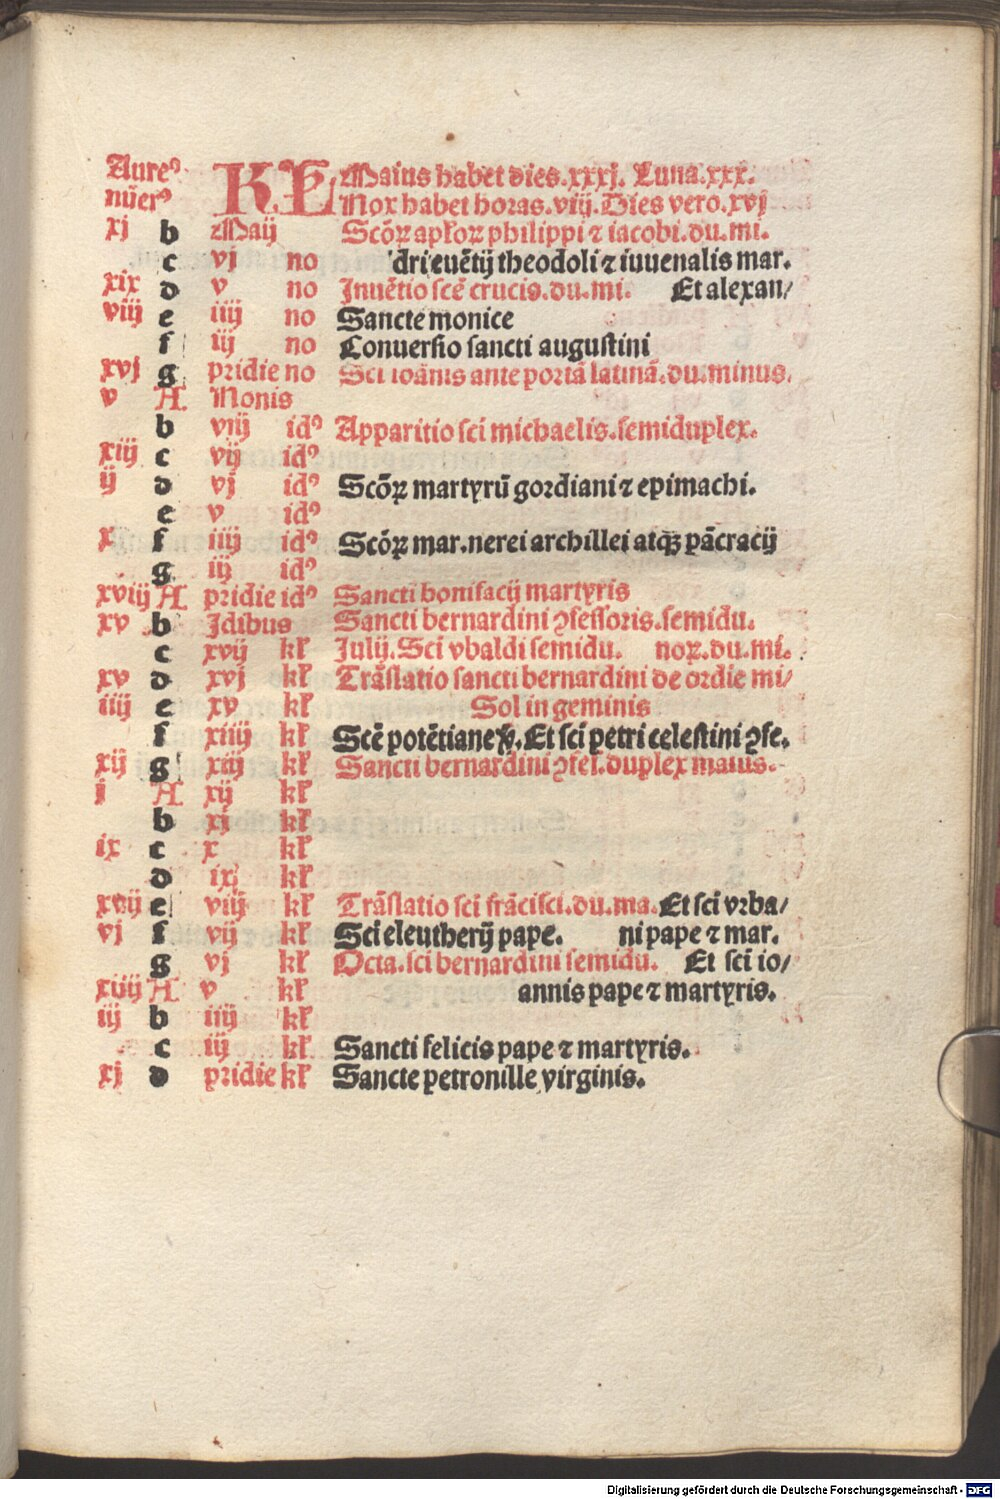 Aureꝰ KL Maius habet dies.xxxj. Luna.xxx.
nūerꝰ Nox habet horas.viij.Dies vero.xvj
xj b Maij Scōꝝ apłoꝝ philippi ⁊ iacobi.du.mi.
c vj no dri euētij theodoli ⁊ iuuenalis mar.
xix d v no Inuētio scē crucis.du.mi. Et alexan/
viij e iiij no Sancte monice
f iij no Conuersio sancti augustini
xvj g pridie no Sci ioānis ante portā latinā.du.minus.
v A Nonis
b viij idꝰ Apparitio sci michaelis.semiduplex.
xiij c vij idꝰ
ij d vj idꝰ Scōꝝ martyrū gordiani ⁊ epimachi.
e v idꝰ
x f iiij idꝰ Scōꝝ mar.nerei archillei atqꝫ pācracij
g iij idꝰ
xviij A pridie idꝰ Sancti bonifacij martyris
xv b Idibus Sancti bernardini ꝯfessoris.semidu.
c xvij kł Julij.Sci vbaldi semidu. noꝝ.du.mi.
xv d xvj kł Trāslatio sancti bernardini de ordie mi/
iiij e xv kł Sol in geminis
f xiiij kł Scē potētiane ꝟ.Et sci petri celestini ꝯfe.
xij g xiij kł Sancti bernardini ꝯfes.duplex maius.
j A xij kł
b xj kł
ix c x kł
d ix kł
xvij e viij kł Trāslatio sci frācisci.du.ma.Et sci vrba/
vj f vij kł Sci eleutherij pape. ni pape ⁊ mar.
g vj kł Octa.sci bernardini semidu. Et sci io/
xiiij A v kł annis pape ⁊ martyris.
iij b iiij kł
c iij kł Sancti felicis pape ⁊ martyris.
xj d pridie kł Sancte petronille virginis.
Digitalisierung gefördert durch die Deutsche Forschungsgemeinschaft - DFG